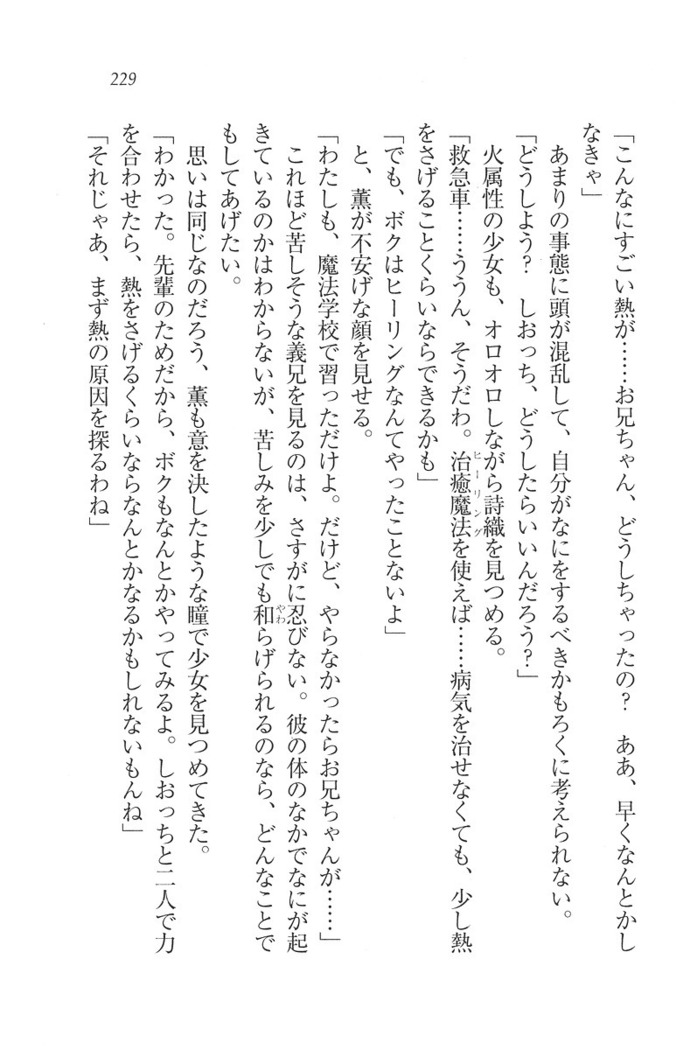 229
「こんなにすごい熱が……お兄ちゃん、どうしちゃったの？　ああ、早くなんとかし
なきゃ」
　あまりの事態に頭が混乱して、自分がなにをするべきかもろくに考えられない。
「どうしよう？　しおっち、どうしたらいいんだろう？」
　火属性の少女も、オロオロしながら詩織を見つめる。
「救急車……ううん、そうだわ。治癒魔法を使えば……病気を治せなくても、少し熱
ヒーリング
をさげることくらいならできるかも」
「でも、ボクはヒーリングなんてやったことないよ」
　と、薫が不安げな顔を見せる。
「わたしも、魔法学校で習っただけよ。だけど、やらなかったらお兄ちゃんが……」
　これほど苦しそうな義兄を見るのは、さすがに忍びない。彼の体のなかでなにが起
きているのかはわからないが、苦しみを少しでも和らげられるのなら、どんなことで
やわ
もしてあげたい。
　思いは同じなのだろう、薫も意を決したような瞳で少女を見つめてきた。
「わかった。先輩のためだから、ボクもなんとかやってみるよ。しおっちと二人で力
を合わせたら、熱をさげるくらいならなんとかなるかもしれないもんね」
「それじゃあ、まず熱の原因を探るわね」